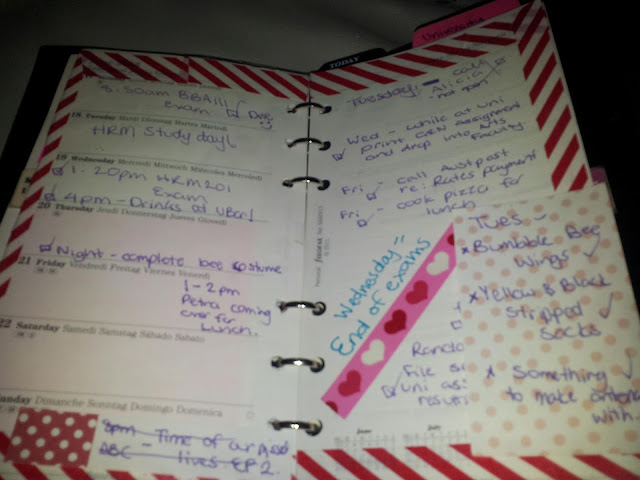 8:50am BBA111
exam
18 Tuesday Mardi Dienstag Martes Martedi
HRM Study day!
19 Wednesday Mercredi Mittwoch Miércoles Mercoledi
1:20pm HRM201
Exam
4pm - Drinks at UBar!
20 Thursday Jeudi Donnerstag Jueves Giovedi
Night - complete bee costume
21 Friday Vendredi Freitag Viernes Venerdi
1-2pm
Petra coming
over for
lunch.
22 Saturday Samedi Samstag Sábado Sabato
Sunday Dimanche Sonntag Domingo Domenica
8pm - Time of our
ABC - lives EP 2.
TODAY
Universitie
Tuesday: call
Alicia
Wed - while at uni
print assignment
and drop into Arts
Faculty.
Fri call Aust post
re: Rates payment
Fri - cook pizza for
lunch
Wednesday =
End of exams
Rando
File
uni as
TUES -
x Bumble Bee
Wings
x Yellow & Black
stripped
socks
x Something
to make antenna
with.